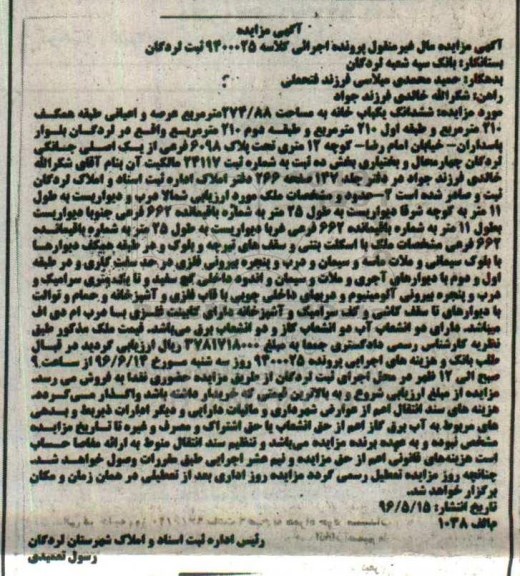 آگهی مزایده
آگهی مزایده مال غیرمنقول پرونده اجرائی کلاسه ۹۴۰۰۰۲۵ ثبت لردگان
بستانکار: بانک سپه شعبه لردگان
بدهکار: حمید محمدی میلاسی فرزند فتحعلی
راهن: شکرالله خالدی فرزند جواد
مورد مزایده: ششدانگ یکباب خانه به مساحت ۲۷۴/۸۸مترمربع عرصه و اعیانی طبقه همکف
۲۱۰ مترمربع و طبقه اول ۲۱۰ مترمربع و طبقه دوم ۲۱۰ مترمربع واقع در لردگان بلوار
پاسداران- خیابان امام رضا- کوچه ۱۲ متری تحت پلاک ۶۰۹۸ فرعی از یک اصلی چمانگی
لردگان چهارمحال و بختیاری بخش ده ثبت به شماره ثبت ۲۴۱۱۷ مالکیت آن بنام آقای شکرالله
خالدی فرزند جواد در دفتر جلد ۱۴۷ صفحه ۲۶۶ دفتر املاک اداره ثبت اسناد و املاک لردگان
ثبت و صادر شده است ۲-حدود و مشخصات ملک مورد ارزیابی شمالا درب و دیواریست به طول
۱۱ متر به کوچه شرقا دیواریست به طول ۲۵ متر به شماره باقیمانده ۶۶۲ فرعی جنوبا دیواریست
بطول ۱۱ متر به شماره باقیمانده ۶۶۲ فرعی غربا دیواریست به طول ۲۵ متر به شماره باقیمانده
۶۶۲ فرعی مشخصات ملک با اسکلت بتنی و سقف های تیرچه و بلوک و در طبقه همکف دیوارها
با بلوک سیمانی و ملات ماسه و سیمان و درب و پنجره بیرونی فلزی در حد سفت کاری و در طبقه
اول و دوم با دیوارهای آجری و ملات و سیمان و اندود داخلی گچ سفید و تا یک متری سرامیک و
درب و پنجره بیرونی آلومینیوم و دربهای داخلی چوبی با قاب فلزی و آشپزخانه و حمام و توالت
با دیوارهای تا سقف کاشی و کف سرامیک و آشپزخانه دارای کابینت فلزی با درب ام دی اف
میباشد. دارای دو انشعاب آب دو انشعاب گاز و دو انشعاب برق می‌باشد. قیمت ملک مذکور طبق
نظریه کارشناس رسمی دادگستری جمعا به مبلغ ۳۷۸۱۷۱۸۰۰۰ ریال ارزیابی گردید در قبال
طلب بانک و هزینه های اجرایی پرونده ۹۴۰۰۰۲۵ روز سه شنبه مورخ ۹۶/۶/۱۴ از ساعت ۹
صبح الی ۱۲ ظهر در محل اجرای ثبت لردگان از طریق مزایده حضوری نقدا به فروش می رسد.
مزایده از مبلغ ارزیابی شروع و به بالاترین قیمتی که خریدار داشته باشد واگذار می‌گردد.
هزینه های سند انتقال اعم از عوارض شهرداری و مالیات دارایی و دیگر ادارات ذیربط و بدهی
های مربوط به آب برق گاز اعم از حق انشعاب یا حق اشتراک و مصرف و غیره تا تاریخ مزایده
مشخص نبوده و به عهده برنده مزایده می‌باشد و تنظیم سند انتقال منوط به ارائه مفاصا حساب
است هزینه‌های قانونی اعم از حق مزایده و نیم عشر اجرایی طبق مقررات وصول خواهد شد.
چنانچه روز مزایده تعطیل رسمی گردد مزایده روز اداری بعد از تعطیلی در همان زمان و مکان
برگزار خواهد شد.
تاریخ انتشار: ۹۶/۵/۱۵
م‌الف ۱۰۳۸
رئیس اداره ثبت اسناد و املاک شهرستان لردگان
رسول تعمیدی